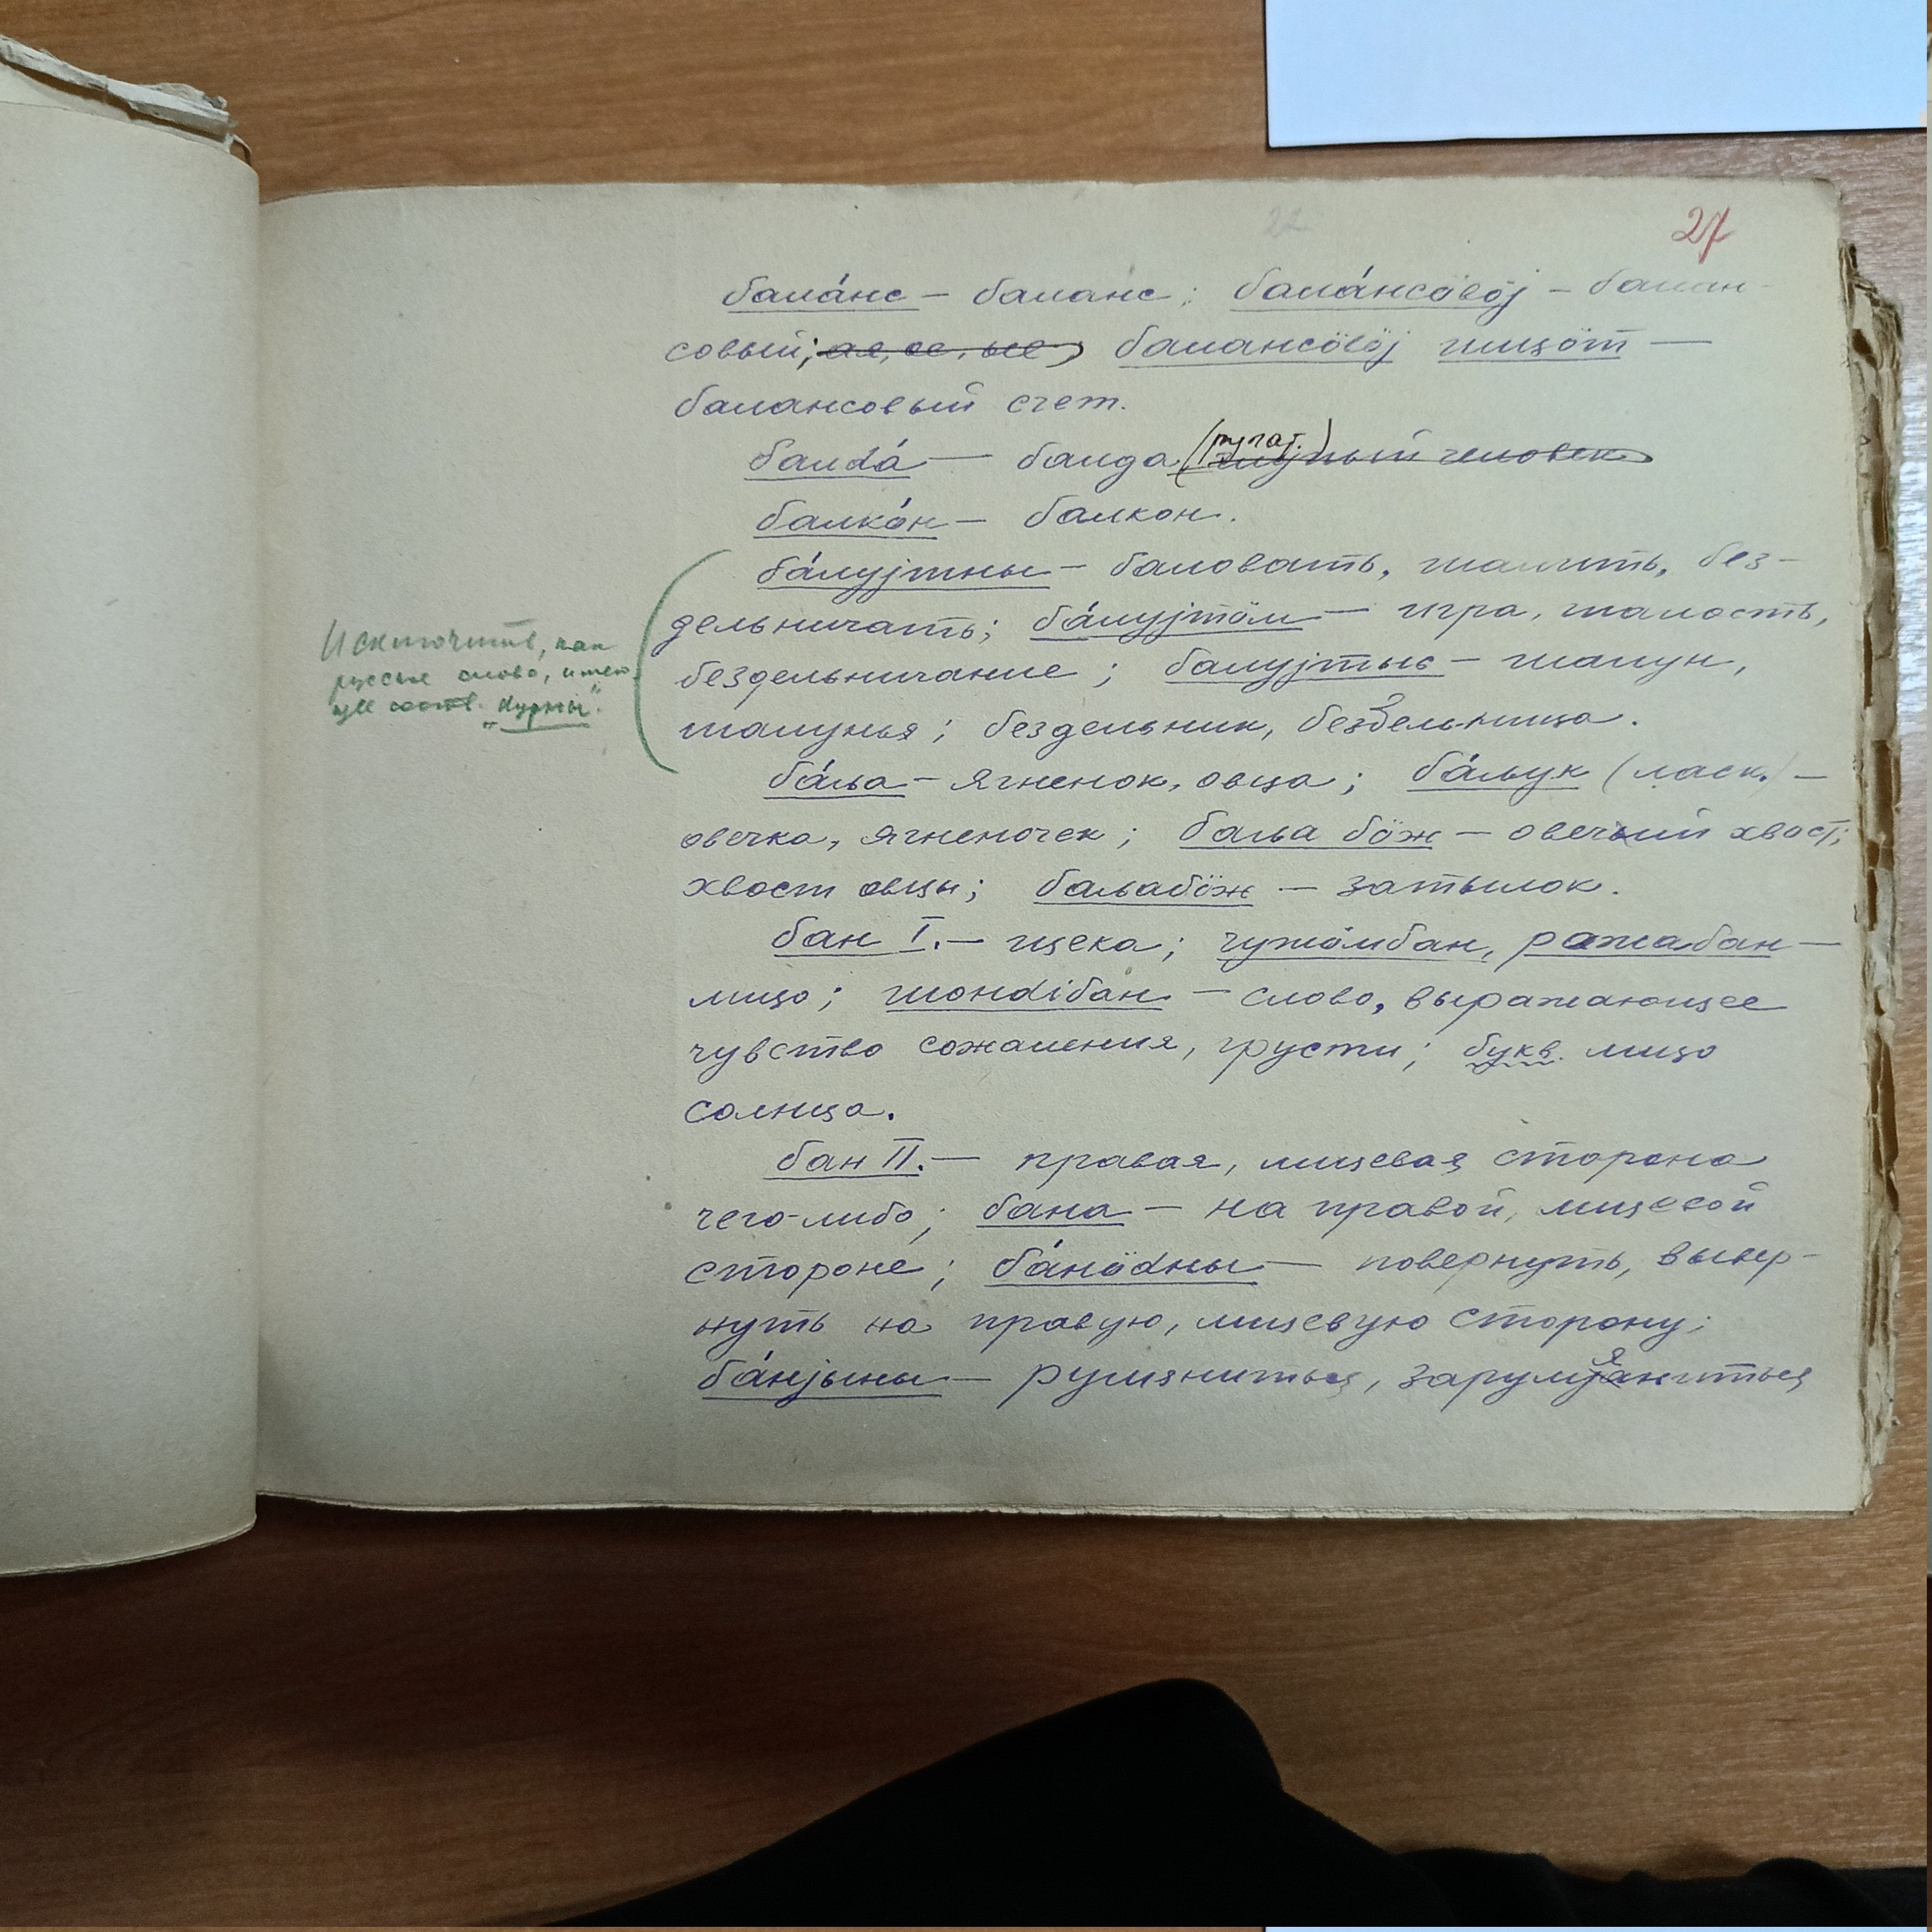 27
бала́нс – баланс; бала́нсöвöj – балан-
совый; ая, ое, ые) балансöвöj щщöт —
балансовый счет.
балdа́ — балда (ругат.) глупый человек
балко́н – балкон.
ба́луjтны – баловать, шалить, без-
дельничать; ба́луjтöм – игра, шалость,
бездельничание; балуjтыс – шалун,
шалунья; бездельник, бездельница.
Исключить, как
русское слово, имею-
щее соотв. „Курни".
ба́ља – ягненок, овца; ба́љук (ласк.) –
овечка, ягненочек; баља бöж – овечий хвост;
хвост овцы; баљабöж – затылок.
бан I. – щека; чужöмбан, ражабан —
лицо; шондiбан – слово, выражающее
чувство сожаления, грусти; букв. лицо
солнца.
бан II. – правая, лицевая сторона
чего-либо; бана – на правой, лицевой
стороне; ба́нödны – повернуть, вывер-
нуть на правую, лицевую сторону;
ба́нjыны – румяниться, зарумяниться